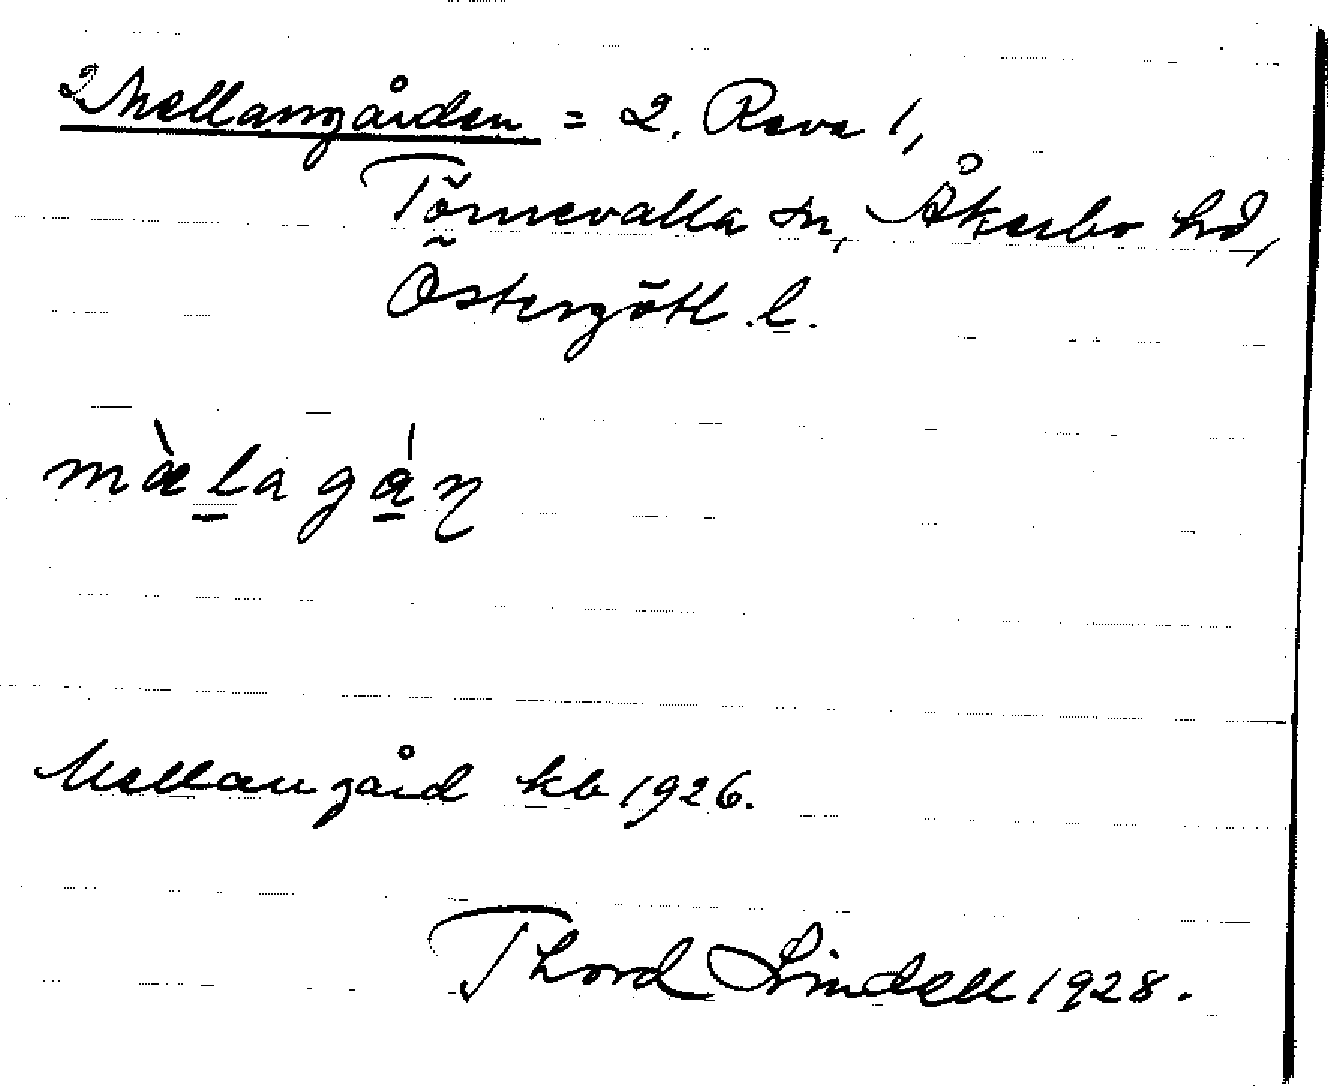 2 Mellangården = 2. Rava 1,
Törnevalla sn, Åkerbo hd,
Östergötl. l.
mæ̀lagáṇ
Mellangård kb 1926.
Thord Lindell 1928.